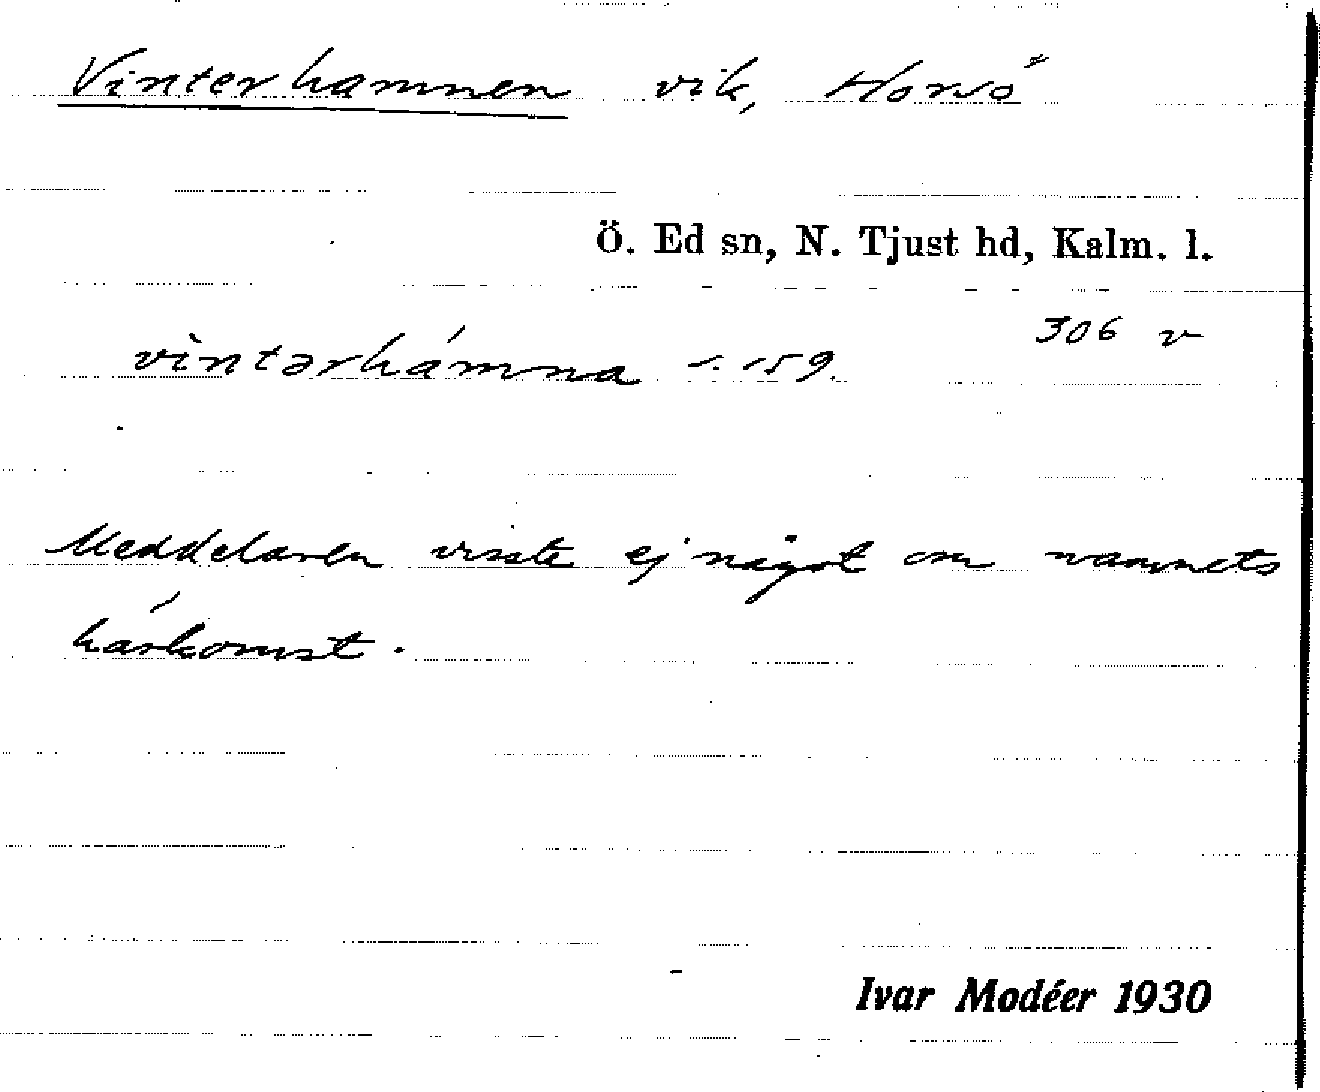 Vinterhamnen vik, Horsö
Ö. Ed sn, N. Tjust hd, Kalm. l.
306 v
vintərhámna s. 159.
Meddelaren visste ej något om namnets
härkomst.
Ivar Modéer 1930